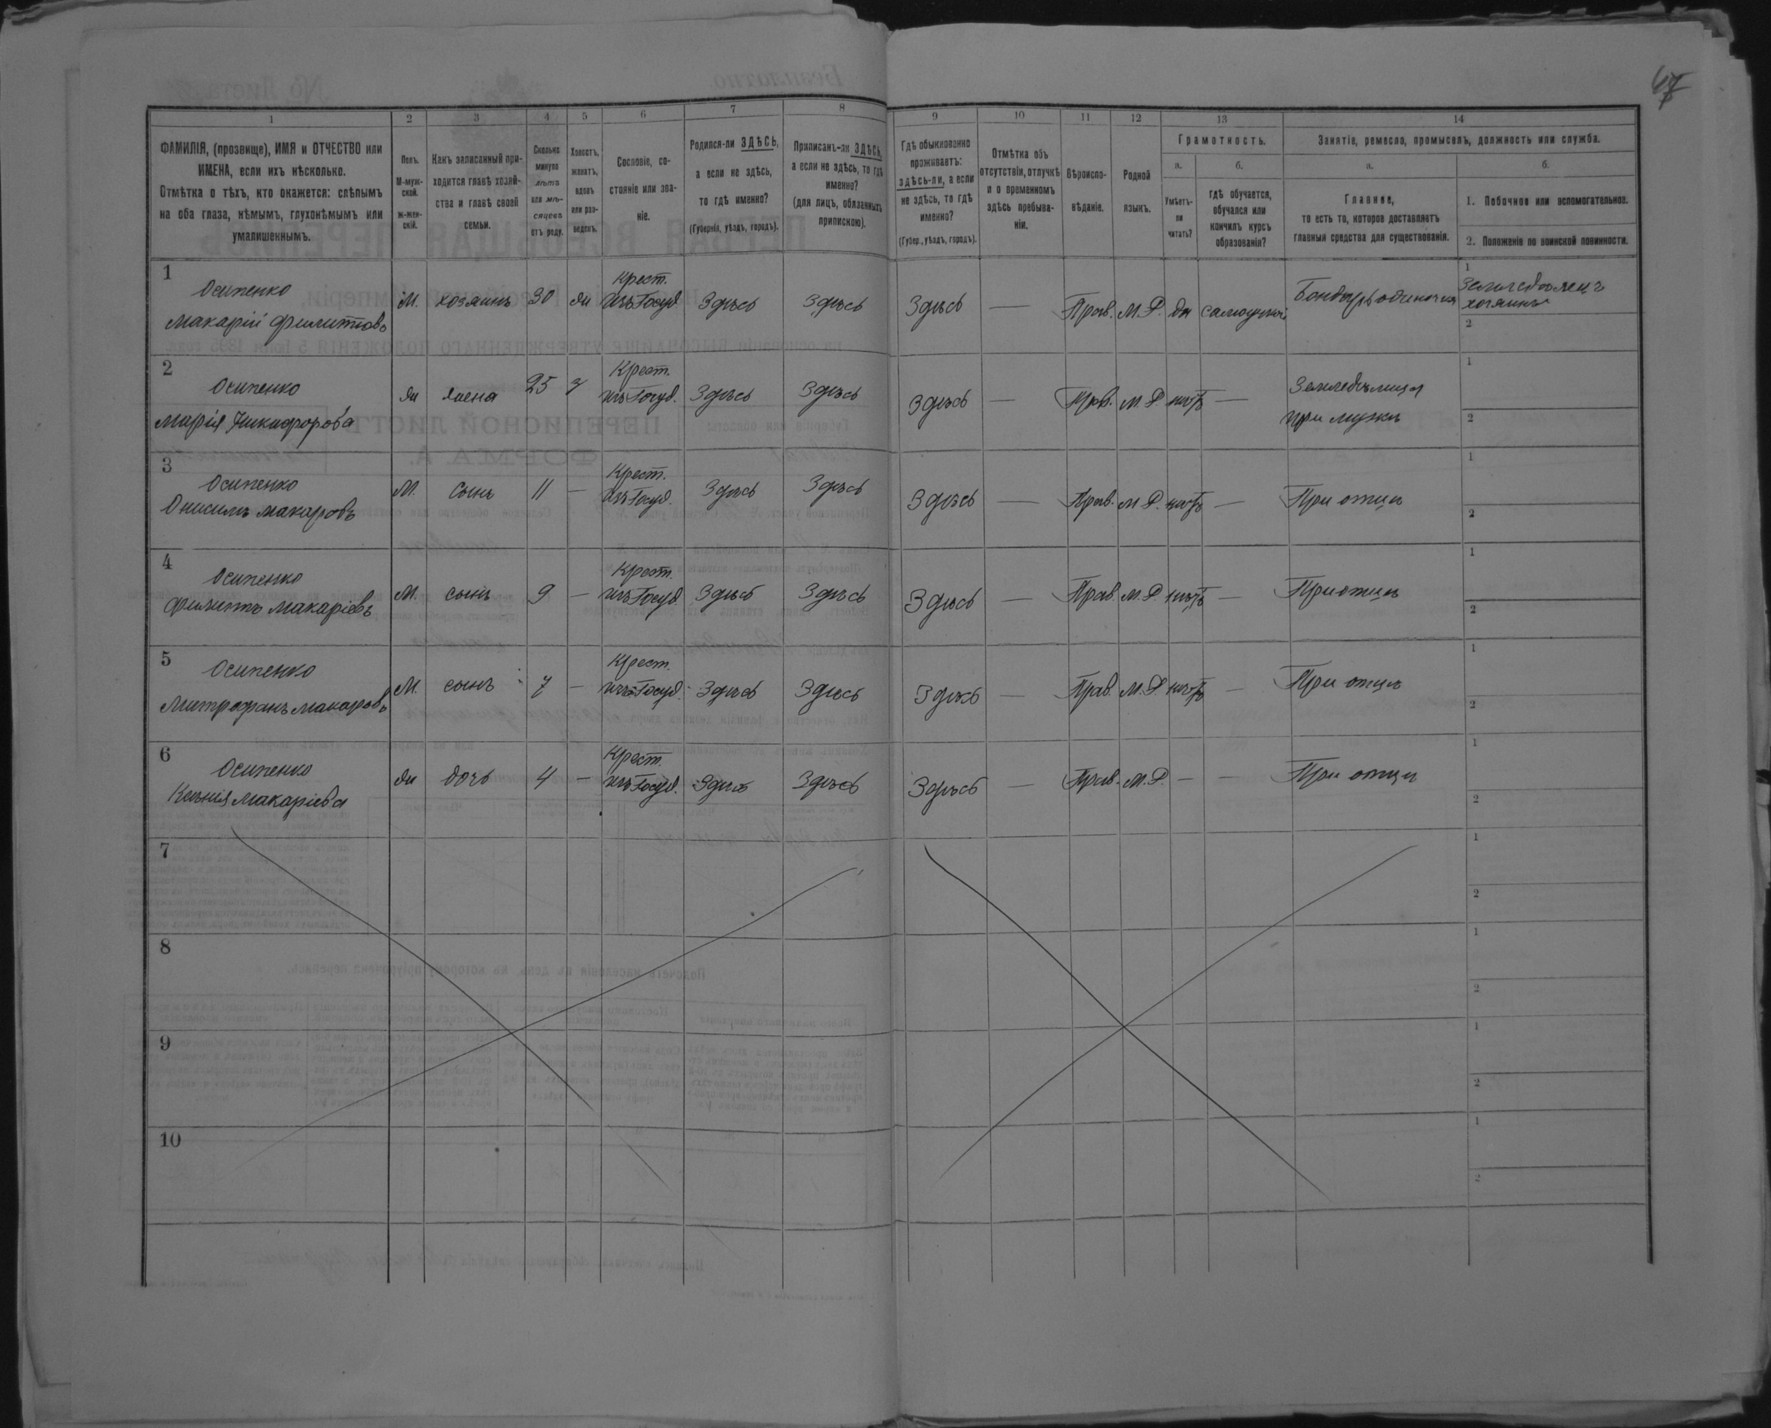 67
1 2 3 4 5 6 7 8 9 10 11 12 13 14
ФАМИЛІЯ, (прозвище), ИМЯ и ОТЧЕСТВО или
ИМЕНА, если ихъ нѣсколько.
Отмѣтка о тѣхъ, кто окажется: слѣпымъ
на оба глаза, нѣмымъ, глухонѣмымъ или
умалишеннымъ.
Полъ.
М-муж-
ской.
ж-жен-
скій.
Какъ записанный при-
ходится главѣ хозяй-
ства и главѣ своей
семьи.
Сколько
минуло
лѣтъ
или мѣ-
сяцевъ
отъ роду.
Холостъ,
женатъ,
вдовъ
или раз-
веденъ.
Сословіе, со-
стояніе или зва-
ніе.
Родился-ли ЗДѢСЬ,
а если не здѣсь,
то гдѣ именно?
(Губернія, уѣздъ, городъ).
Приписанъ-ли ЗДѢСЬ,
а если не здѣсь, то гдѣ
именно?
(для лицъ, обязанныхъ
припискою).
Гдѣ обыкновенно
проживаетъ:
здѣсь-ли, а если
не здѣсь, то гдѣ
именно?
(Губер., уѣздъ, городъ).
Отмѣтка объ
отсутствіи, отлучкѣ
и о временномъ
здѣсь пребыва-
ніи.
Вѣроиспо-
вѣданіе.
Родной
языкъ.
Грамотность.
а. б.
Умѣетъ-
ли
читать?
Гдѣ обучается,
обучался или
кончилъ курсъ
образованія?
Занятіе, ремесло, промыселъ, должность или служба.
а. б.
Главное,
то есть то, которое доставляетъ
главныя средства для существованія.
1. Побочное или вспомогательное.
2. Положеніе по воинской повинности.
1 Осипенко
Макарій Филиповъ М. хозяинъ 30 Крест. изъ Госуд. Здѣсь Здѣсь Здѣсь — Прав. М.Р. да Бондарь одиночка 1 Земледѣлецъ
хозяинъ
2
2 Осипенко
Марія Никифорова ж жена 25 Крест. изъ Госуд. Здѣсь Здѣсь Здѣсь — Прав. М.Р. нѣтъ — Земледѣлица
при мужѣ 1
2
3 Осипенко
Онисимъ Макаровъ М. сынъ 11 — Крест. изъ Госуд. Здѣсь Здѣсь Здѣсь — Прав. М.Р. нѣтъ — При отцѣ 1
2
4 Осипенко
Филипъ Макаріевъ М. сынъ 9 — Крест. изъ Госуд. Здѣсь Здѣсь Здѣсь — Прав. М.Р. нѣтъ — При отцѣ 1
2
5 Осипенко
Митрофанъ Макаровъ М. сынъ 7 — Крест. изъ Госуд. Здѣсь Здѣсь Здѣсь — Прав. М.Р. нѣтъ — При отцѣ 1
2
6 Осипенко
Ксенія Макаріева ж дочь 4 — Крест. изъ Госуд. Здѣсь Здѣсь Здѣсь — Прав. М.Р. — — При отцѣ 1
2
7 1
2
8 1
2
9 1
2
10 1
2